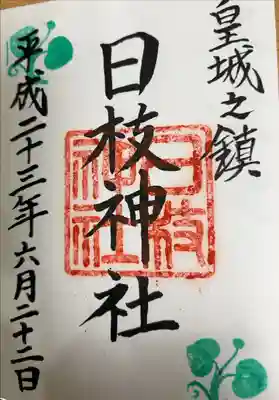 皇城之鎮
日枝神社
日枝神社
平成二十三年六月二十二日